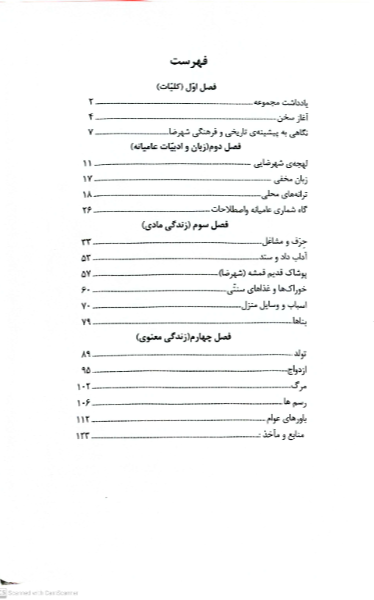 فهرست
فصل اوّل (کلیّات)
یادداشت مجموعه ۲
آغاز سخن ۴
نگاهی به پیشینه‌ی تاریخی و فرهنگی شهرضا ۷
فصل دوم(زبان و ادبیّات عامیانه)
لهجه‌ی شهرضایی ۱۱
زبان مخفی ۱۷
ترانه‌های محلی ۱۸
گاه شماری عامیانه واصطلاحات ۲۶
فصل سوم (زندگی مادی)
حِرَف و مشاغل ۳۳
آداب داد و ستد ۵۳
پوشاک قدیم قمشه (شهرضا) ۵۷
خوراک‌ها و غذاهای سنتّی ۶۰
اسباب و وسایل منزل ۷۰
بناها ۷۹
فصل چهارم(زندگی معنوی)
تولد ۸۹
ازدواج ۹۵
مرگ ۱۰۲
رسم ها ۱۰۶
باورهای عوام ۱۱۲
منابع و مآخذ : ۱۳۳
Scanned with CamScanner